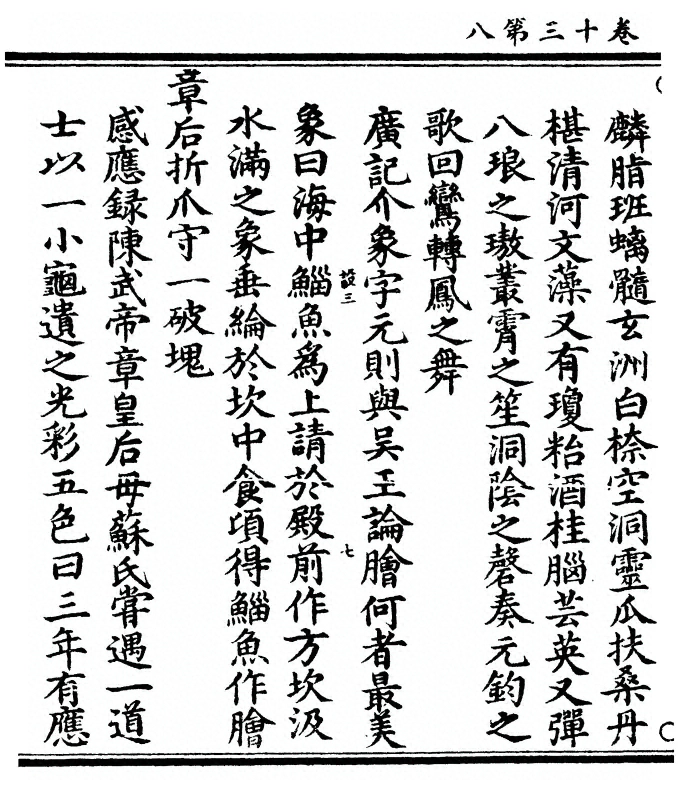 卷十三第八
麟脂班螭髓玄洲白㮈空洞靈瓜扶桑丹
椹清河文藻又有瓊粭酒桂腦芸英又彈
八琅之璈叢霄之笙洞陰之磬奏元鈞之
歌回鸞轉鳳之舞
廣記介象字元則與吳王論膾何者最美
象曰海中鯔魚爲上請於殿前作方坎汲
水滿之象垂綸於坎中食頃得鯔魚作膾
章后折爪守一破塊
感應録陳武帝章皇后母蘇氏嘗遇一道
士以一小龜遺之光彩五色曰三年有應
設三
七